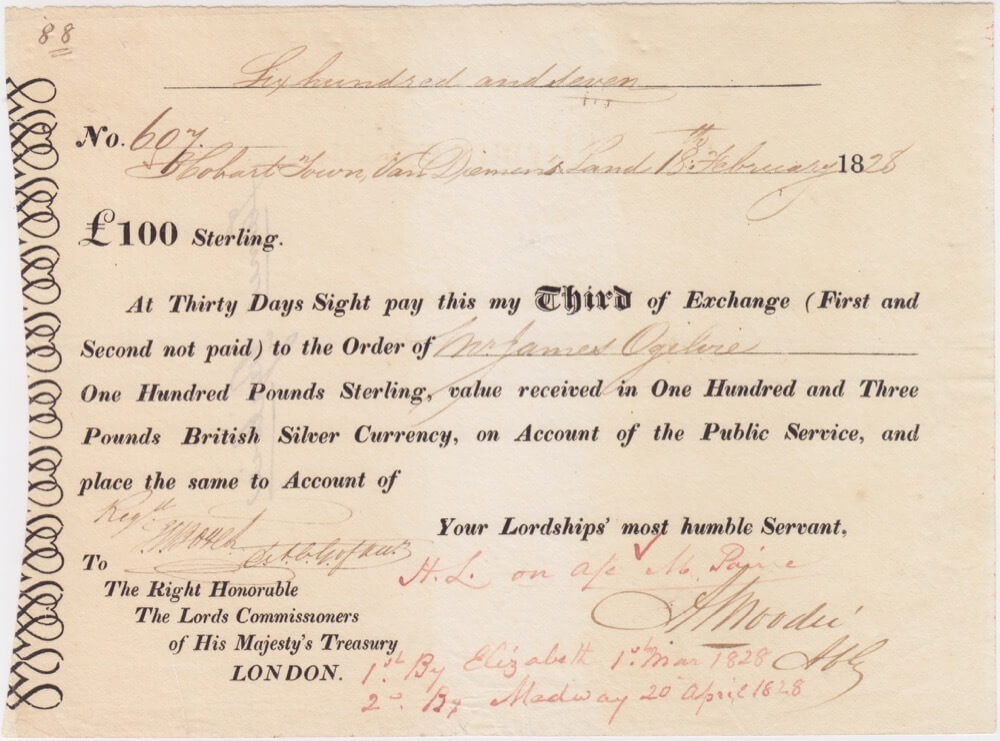 88
Six hundred and seven
No. 607.
Hobart Town, Van Diemen's Land 18th February 1828
£100 Sterling.
At Thirty Days Sight pay this my Third of Exchange (First and
Second not paid) to the Order of Mr James Ogilvie
One Hundred Pounds Sterling, value received in One Hundred and Three
Pounds British Silver Currency, on Account of the Public Service, and
place the same to Account of
Your Lordships' most humble Servant,
Regd
To
H. L. on a/c
The Right Honorable
The Lords Commissioners
A Moodie
of His Majesty's Treasury
LONDON.
1st By Elizabeth 1st Mar 1828
2d By Medway 20 April 1828